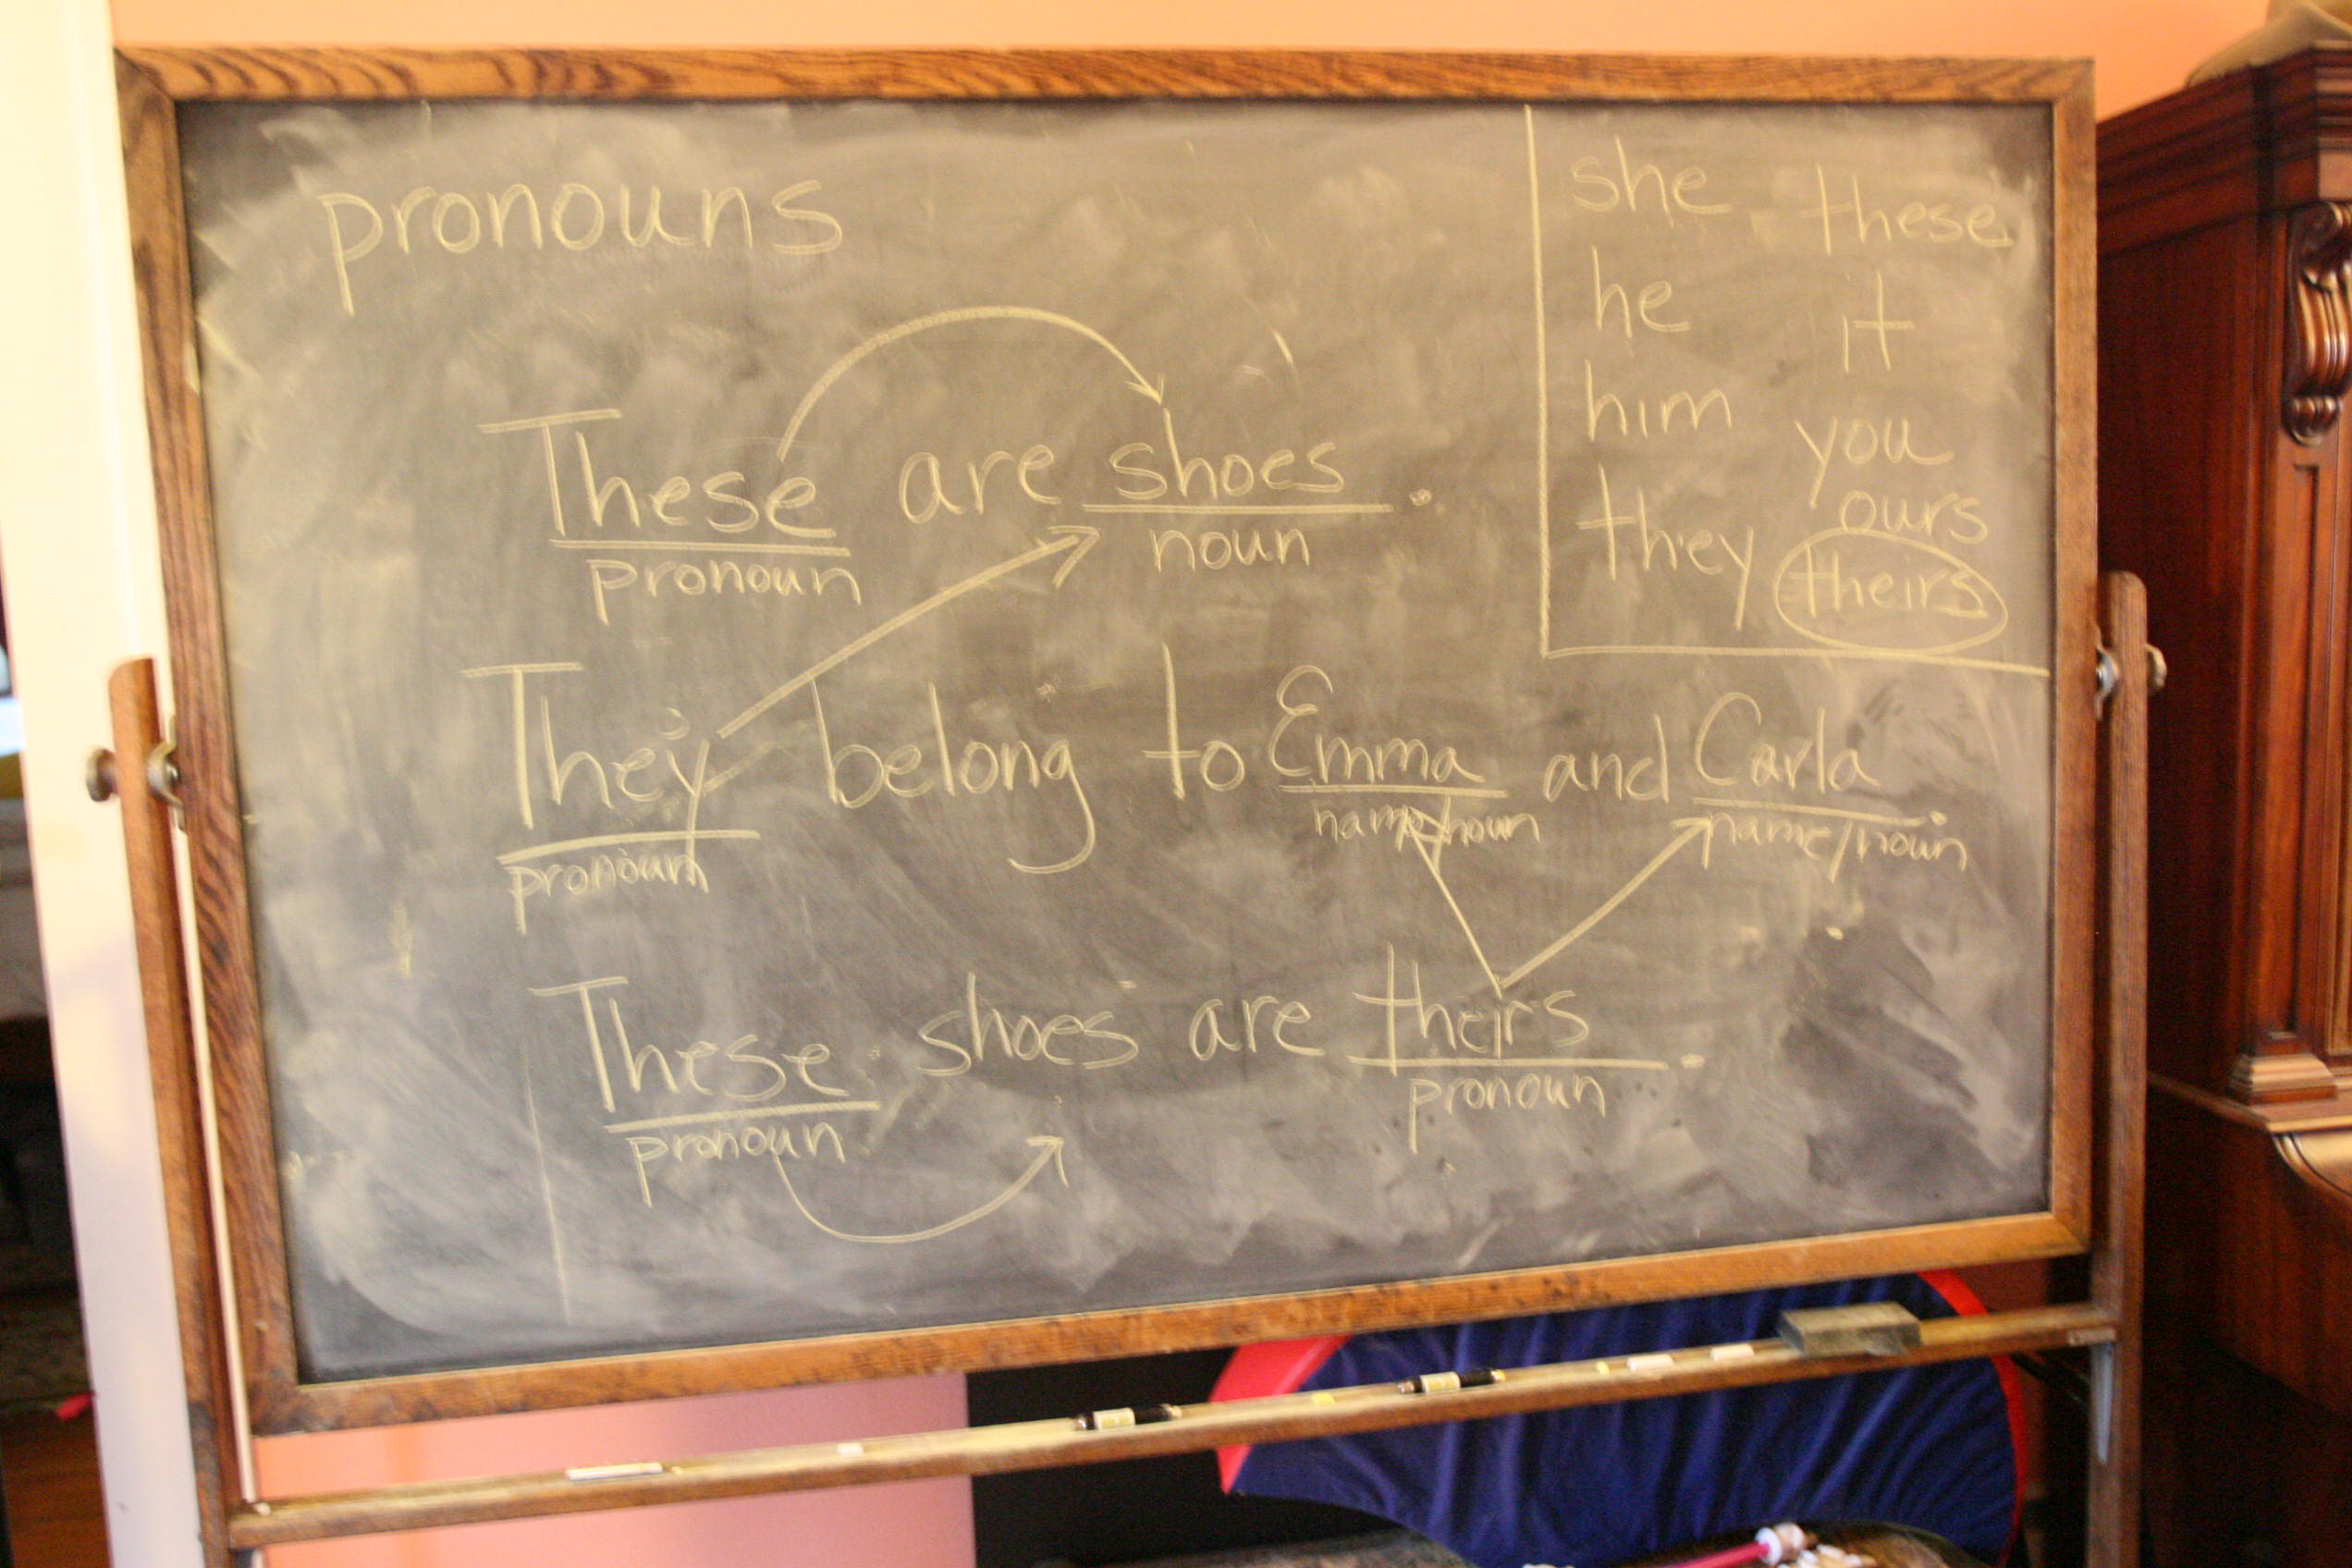 pronouns
These are shoes.
pronoun noun
They belong to Emma and Carla.
pronoun name/noun name/noun
These shoes are theirs.
pronoun pronoun
she these
he it
him you
ours
they theirs